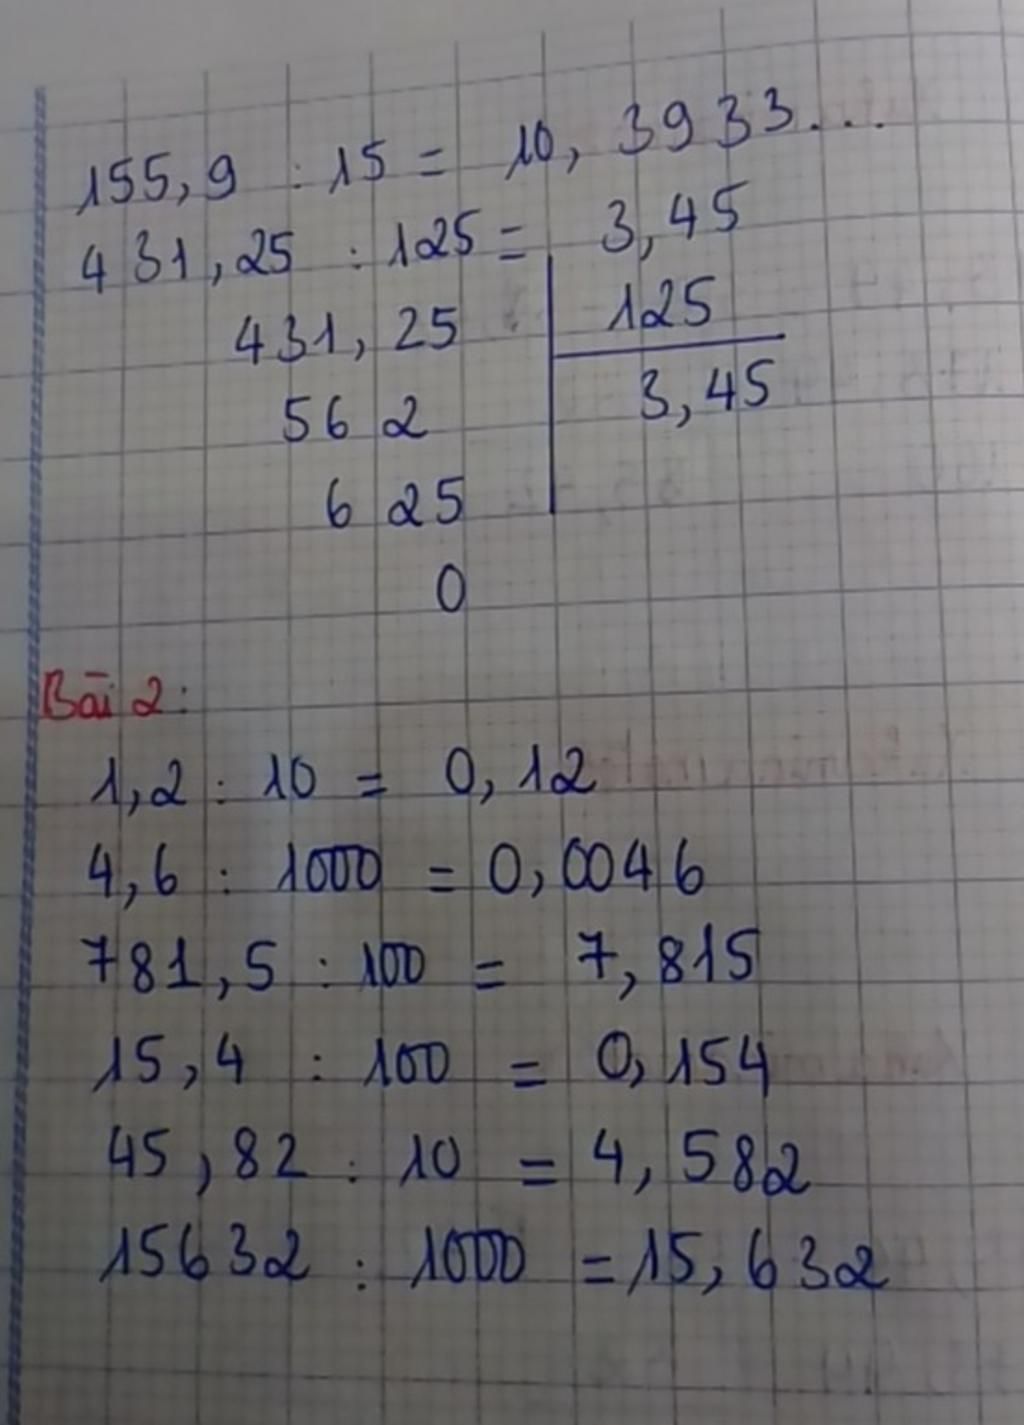 155,9 : 15 = 10,3933...
431,25 : 125 = 3,45
431,25 125
562 3,45
625
0
Bài 2:
1,2 : 10 = 0,12
4,6 : 1000 = 0,0046
781,5 : 100 = 7,815
15,4 : 100 = 0,154
45,82 : 10 = 4,582
15632 : 1000 = 15,632